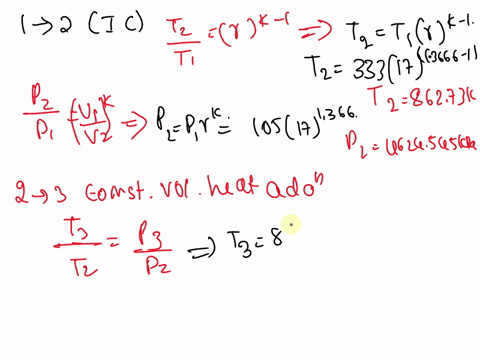 1→2 (IC) T2/T1 = (r)^k-1 ⇒ T2 = T1(r)^k-1.
T2 = 333(17)^(1.3666-1)
T2 = 862.73K
P2/P1 = (V1/V2)^k ⇒ P2 = P1r^k = 105(17)^1.366.
2→3 Const. vol. heat adoⁿ
T3/T2 = P3/P2 ⇒ T3 = 8